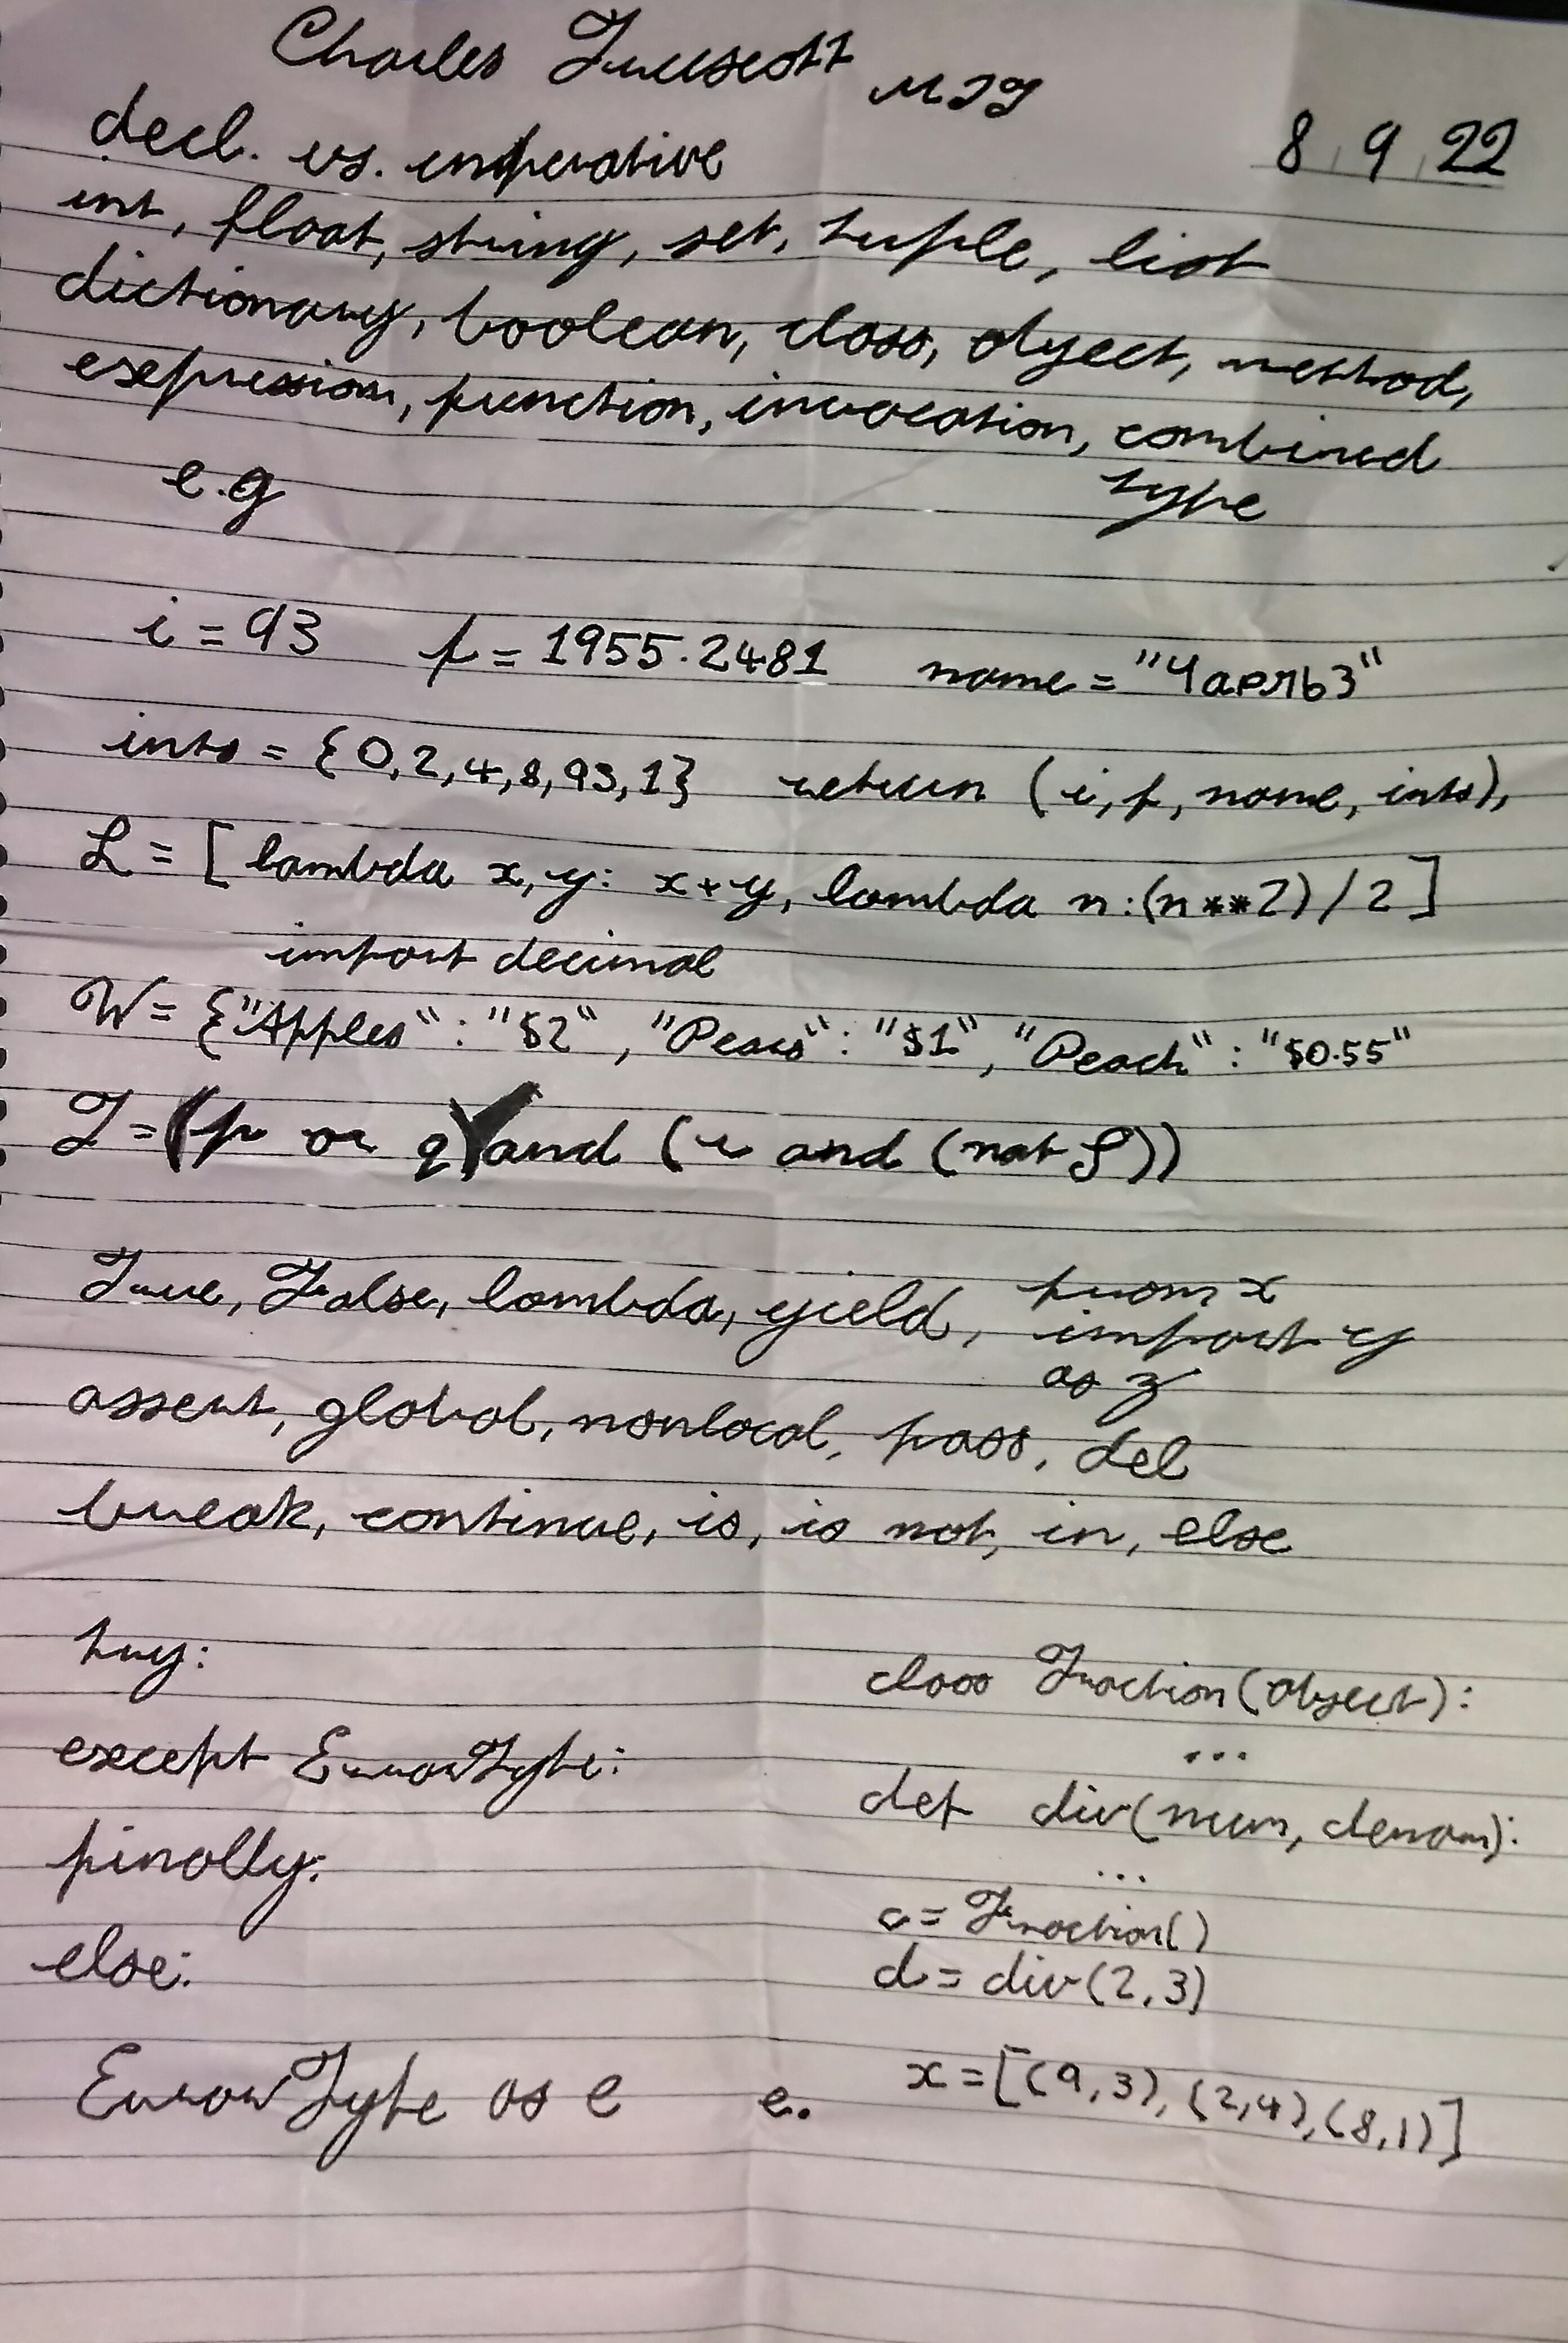 Charles Truscott MIT
8, 9, 22
decl. vs. imperative
int, float, string, set, tuple, list
dictionary, boolean, class, object, method,
expression, function, invocation, combined
type
e.g
i = 93 f = 1955.2481 name = "Чарльз"
ints = {0,2,4,8,93,1} return (i, f, name, ints),
L = [lambda x,y: x+y, lambda n:(n**2)/2]
import decimal
W = {"Apples": "$2", "Pears": "$1", "Peach": "$0.55"
T = (p or q) and (r and (not S))
True, False, lambda, yield, from x
import y
as z
assert, global, nonlocal, pass, del
break, continue, is, is not, in, else
try:
except ErrorType:
finally:
else:
ErrorType as e e.
class Fraction(object):
...
def div(num, denom):
...
c = Fraction()
d = div(2,3)
x = [(9,3), (2,4), (8,1)]